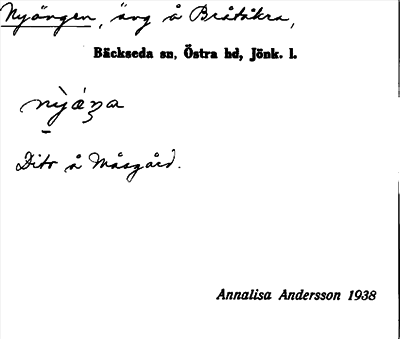 Nyängen, äng å Bråtåkra,
Bäckseda sn, Östra hd, Jönk. l.
Dito å Måsgård.
Annalisa Andersson 1938